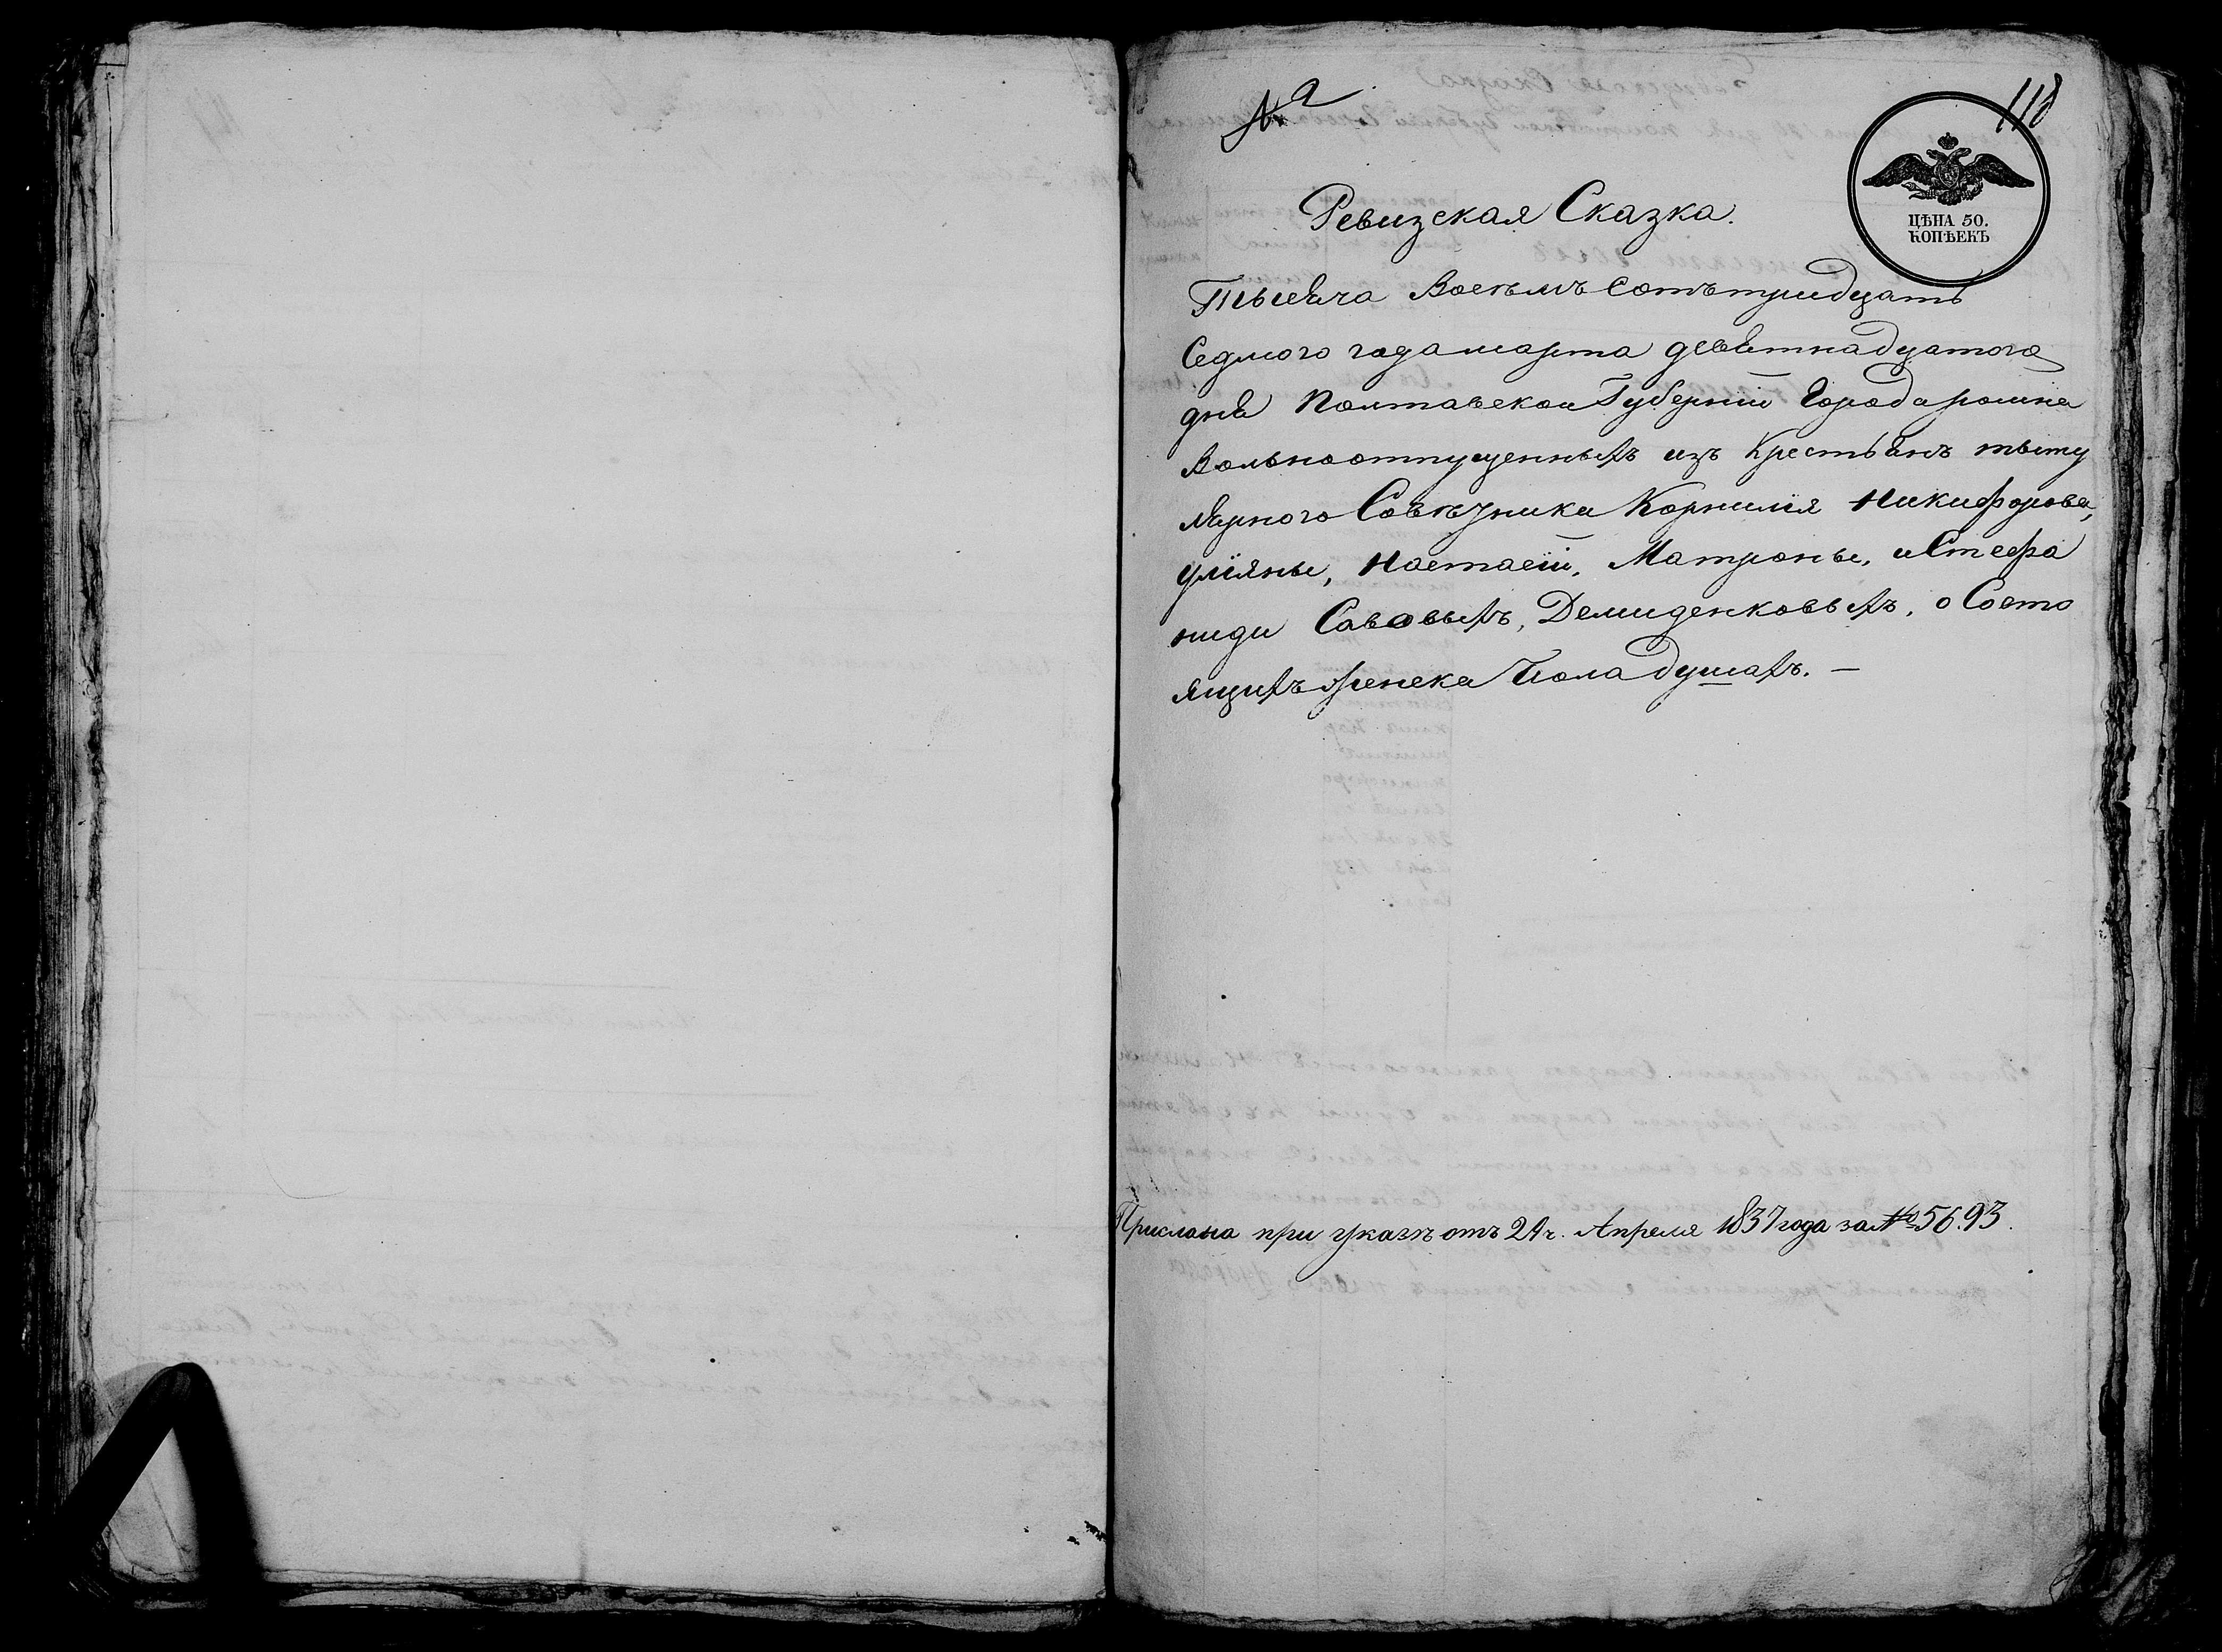 №
118
Ревизская Сказка.
ЦѢНА 50.
КОПѢЕКЪ
Тысяча Восемъ Сотъ тридцать
Седмого года марта девятнадцатого
дня Полтавской Губерніи Города ромна
Вольноотпущенныхъ изъ Крестьянъ титу
лярного Совѣтника Корнилія Никифорова,
Уліяны, Настасіи, Матроны, и Стефа
ниди Савовыхъ, Демиденковыхъ, о Состо
ящихъ женска Пола душахъ. —
Прислана при указѣ отъ 24 ч. Апреля 1837 года за № 56.93.